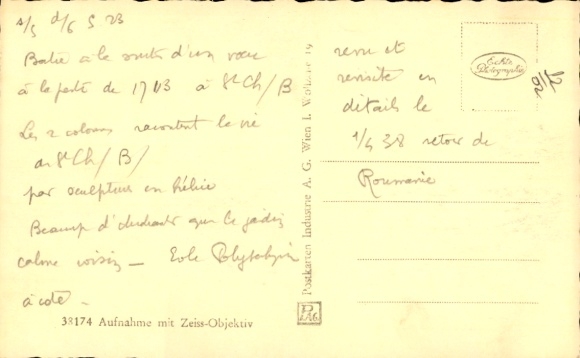 Batie à la suite d'un voeu
à la peste de 1713 à St Ch/B
Les 2 colonnes racontent la vie
de St Ch/B/
par sculpteurs en hélice
Beaucoup d'étudiants que ce jardin
calme voisin – Ecole Polytechnique
à côté –
38174 Aufnahme mit Zeiss-Objektiv
Postkarten Industrie A. G. Wien I.
Echte Photographie
revu et
revisité en
détails le
1/5 38 retour de
Roumanie